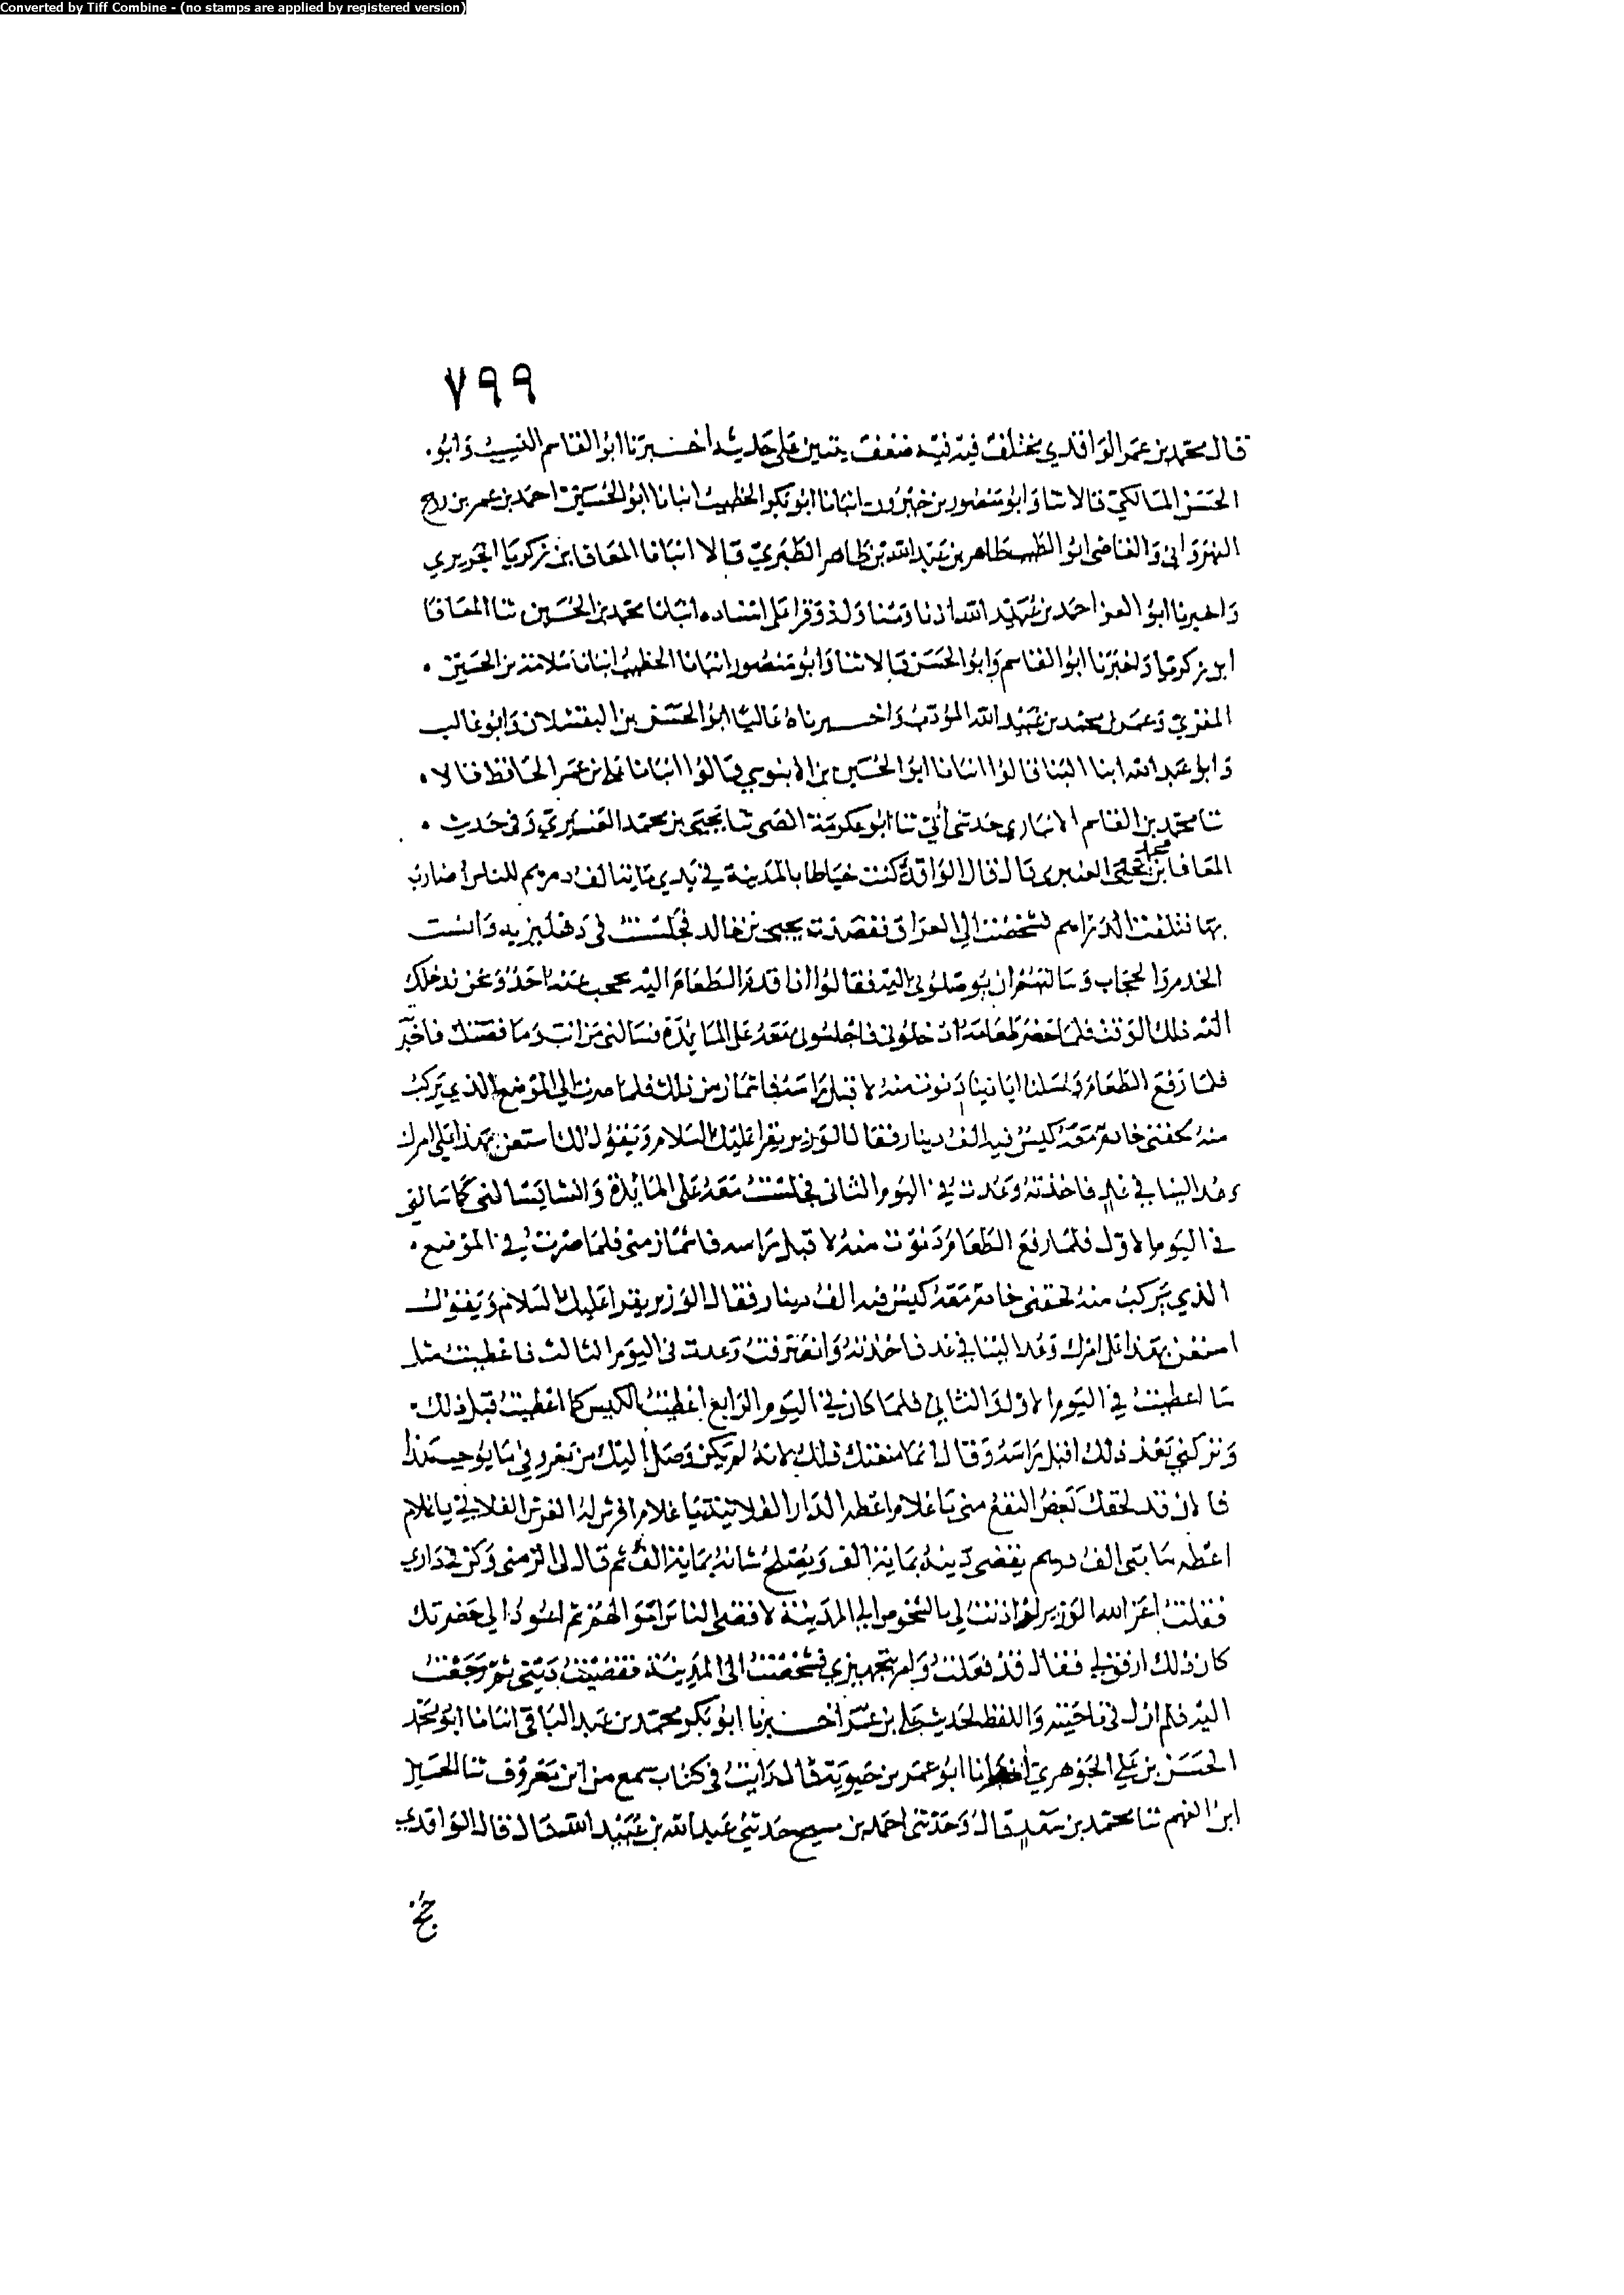 Converted by Tiff Combine - (no stamps are applied by registered version)
٧٩٩
قال محمد بن عمر الواقدي مختلف فيه فيه ضعف يتبين على حديثه اخبرنا ابو القاسم النسيب وابو
الحسن المالكي قالا ثنا وابو منصور بن خيرون انبانا ابو بكر الخطيب انبانا ابو الحسين احمد بن عمر بن روح
النهرواني والقاضي ابو الطيب طاهر بن عبد الله بن طاهر الطبري قالا انبانا المعافا بن زكريا الجريري
واخبرنا ابو العز احمد بن عبيد الله اذنا ومناولة وقرا على اسناده انبانا محمد بن الحسين ثنا المعافا
ابن زكريا واخبرنا ابو القاسم وابو الحسن قالا ثنا وابو منصور انبانا الخطيب انبانا سلامة بن الحسين
المقري وعمر بن محمد بن عبيد الله المؤدب واخبرناه عاليا ابو الحسن بن البقشلان وابو غالب
وابو عبد الله ابنا البنا قالوا انبانا ابو الحسين بن الابنوسي قالوا انبانا علي بن عمر الحافظ قالا
ثنا محمد بن القاسم الانباري حدثني ابي ثنا ابو عكرمة الضبي ثنا يحيى بن محمد العنبري وفي حديث
المعافا محمد بن يحيى العنبري قال قال الواقدي كنت خياطا بالمدينة في يدي مايتا الف درهم للناس اضارب
بها فتلفت الدراهم فشخصت الى العراق فقصدت يحيى بن خالد فجلست في دهليزيه وانست
الخدم والحجاب وسالتهم ان يوصلوني اليه فقالوا اذا قدم الطعام اليه لم يحجب عنه احد ونحن ندخلك
اليه ذلك الوقت فلما حضر طعامه ادخلوني فاجلسوني معه على المايدة فسالني من انت وما قصتك فاخبرته
فلما رفع الطعام وغسلنا ايدينا دنوت منه لاقبل راسه فاشماز من ذلك فلما صرت الى الموضع الذي يركب
منه لحقني خادم معه كيس فيه الف دينار فقال الوزير يقرا عليك السلام ويقول لك استعن بهذا على امرك
وعد الينا في غد فاخذته وعدت في اليوم الثاني فجلست معه على المايدة وانشا يسالني كما سالني
في اليوم الاول فلما رفع الطعام دنوت منه لاقبل راسه فاشماز مني فلما صرت في الموضع
الذي يركب منه لحقني خادم معه كيس فيه الف دينار فقال الوزير يقرا عليك السلام ويقول لك
استعن بهذا على امرك وعد الينا في غد فاخذته وانصرفت وعدت في اليوم الثالث فاعطيت مثل
ما اعطيت في اليوم الاول والثاني فلما كان في اليوم الرابع اعطيت الكيس كما اعطيت قبل ذلك
وتركني بعد ذلك اقبل راسه وقال انما منعتك ذلك لانه لم يكن وصل اليك من معروفي ما يوجب هذا
فالان قد لحقك بعض النفع مني يا غلام اعطه الدار الفلانية يا غلام افرش له الفرش الفلاني يا غلام
اعطه مايتي الف درهم يقضي دينه بماية الف ويصلح شانه بماية الف ثم قال لي الزمني وكن في داري
فقلت اعز الله الوزير لو اذنت لي بالشخوص الى المدينة لاقضي الناس اموالهم ثم اعود الى حضرتك
كان ذلك ارفق بي فقال قد فعلت وامر بتجهيزي فشخصت الى المدينة فقضيت ديني ثم رجعت
اليه فلم ازل في ناحيته واللفظ لحديث علي بن عمر اخبرنا ابو بكر محمد بن عبد الباقي انبانا ابو محمد
الحسن بن علي الجوهري انبانا ابو عمر بن حيويه قال رايت في كتاب سمع من ابن معروف ثنا الحسين
ابن الفهم ثنا محمد بن سعد قال وحدثني احمد بن مسبح حدثني عبد الله بن عبيد الله قال قال الواقدي